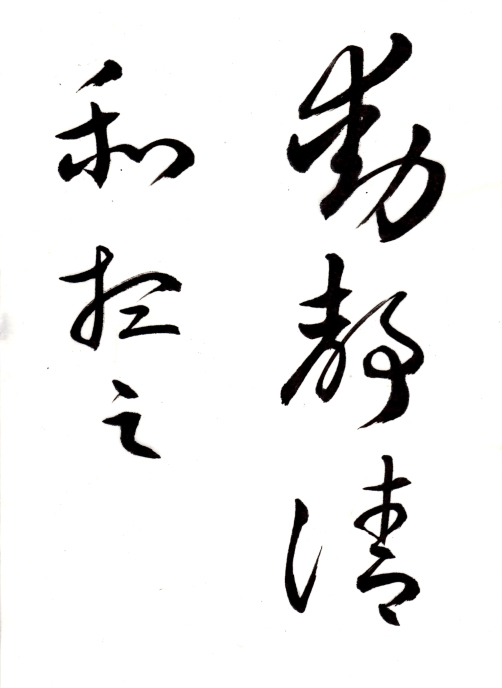 動靜清
和之